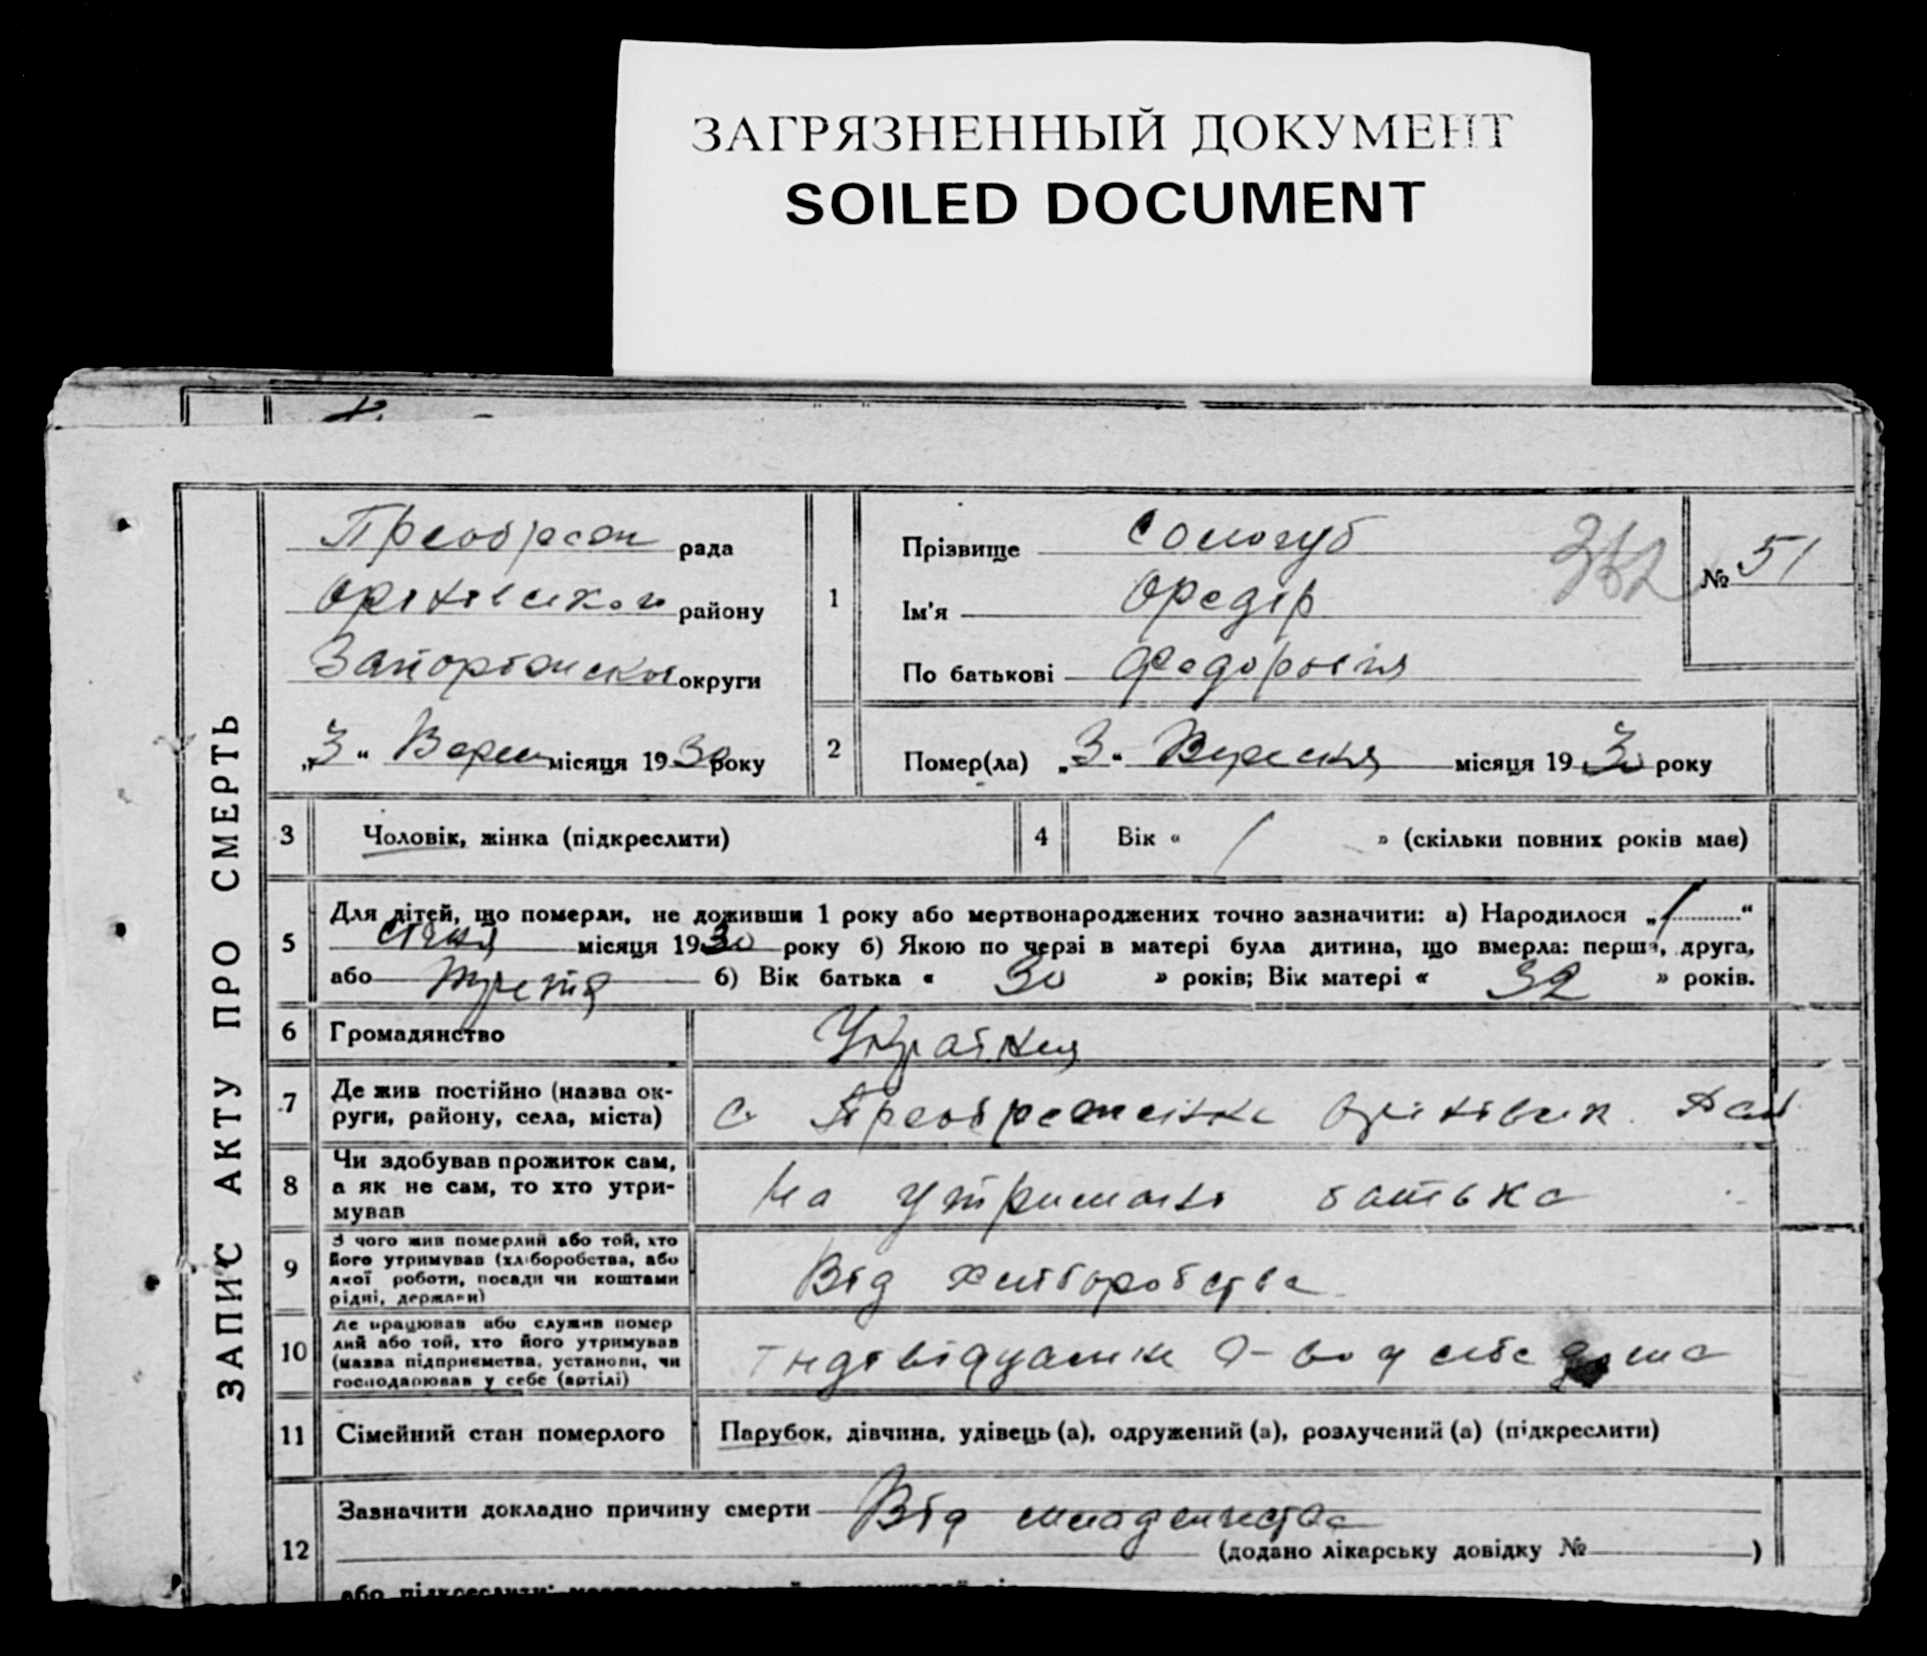 ЗАГРЯЗНЕННЫЙ ДОКУМЕНТ
SOILED DOCUMENT
ЗАПИС АКТУ ПРО СМЕРТЬ
Преображен рада
Оріхівського району
Запоріжської округи
„3“ Верес місяця 1930 року
1
Прізвище Сологуб
Ім'я Федір
По батькові Федоровіч
№ 51
2
Помер(ла) „3“ Вересня місяця 1930 року
3 Чоловік, жінка (підкреслити)
4 Вік « 1 » (скільки повних років має)
5 Для дітей, що померли, не доживши 1 року або мертвонароджених точно зазначити: а) Народилося „1“
січня місяця 1930 року б) Якою по черзі в матері була дитина, що вмерла: перша, друга,
або третя б) Вік батька « 30 » років; Вік матері « 32 » років.
6 Громадянство
7 Де жив постійно (назва ок-
руги, району, села, міста) с. Преображенка Оріхівськ. Рай
8 Чи здобував прожиток сам,
а як не сам, то хто утри-
мував На утриманні батька
9 З чого жив померлий або той, хто
його утримував (хліборобства, або
якої роботи, посади чи коштами
рідні, держави) Від хліборобства
10 Де працював або служив помер
лий або той, хто його утримував
(назва підприємства, установи, чи
господарював у себе (артілі)
у себе дома
11 Сімейний стан померлого Парубок, дівчина, удівець (а), одружений (а), розлучений (а) (підкреслити)
12 Зазначити докладно причину смерти Від младенчества
(додано лікарську довідку № )
або підкреслити: